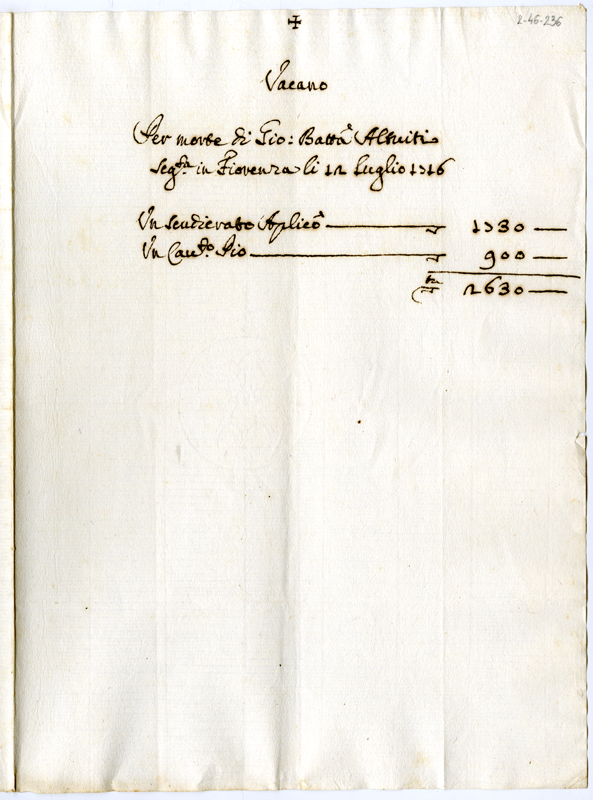 ✠
2-46-236
Vacano
Per morte di Gio: Batta Altuiti
Seg.ta in Fiorenza li 12 Luglio 1716
Un scudierato Aplico 1730
Un Cau.to Pio 900
2630